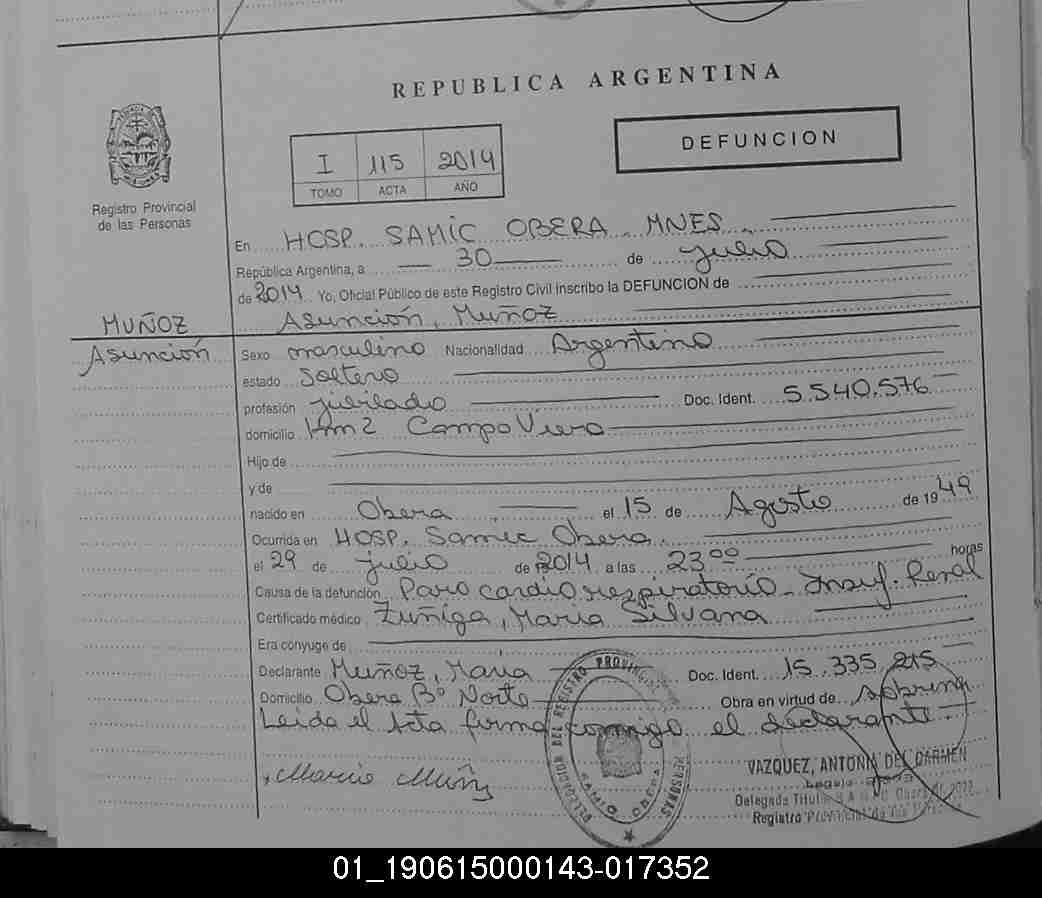 REPUBLICA ARGENTINA
DEFUNCION
I 115 2014
TOMO ACTA AÑO
Registro Provincial
de las Personas
En HOSP. SAMIC OBERA. MNES.
República Argentina, a 30 de julio
de 2014 Yo, Oficial Público de este Registro Civil inscribo la DEFUNCION de
MUÑOZ
Asunción, Muñoz
Asunción
Sexo masculino Nacionalidad Argentino
estado Soltero
profesión jubilado Doc. Ident. 5.540.576
domicilio Km 2 Campo Viera
Hijo de
y de
nacido en Obera el 15 de Agosto de 1949
Ocurrida en Hosp. Samic Obera.
el 29 de julio de 2014 a las 23:00 horas
Causa de la defunción Paro cardiorespiratorio - Insuf. Renal
Certificado médico Zuñiga, Maria Silvana
Era conyuge de
Declarante Muñoz, Maria Doc. Ident. 15.335.215
Domicilio Obera B° Norte Obra en virtud de sobrina
Leida el Acta firma conmigo el declarante.
VAZQUEZ, ANTONIA DEL CARMEN
Delegada
Registro Provincial de las
DELEGACION DEL REGISTRO PROVINCIAL PERSONAS
SAMIC OBERA
01_190615000143-017352